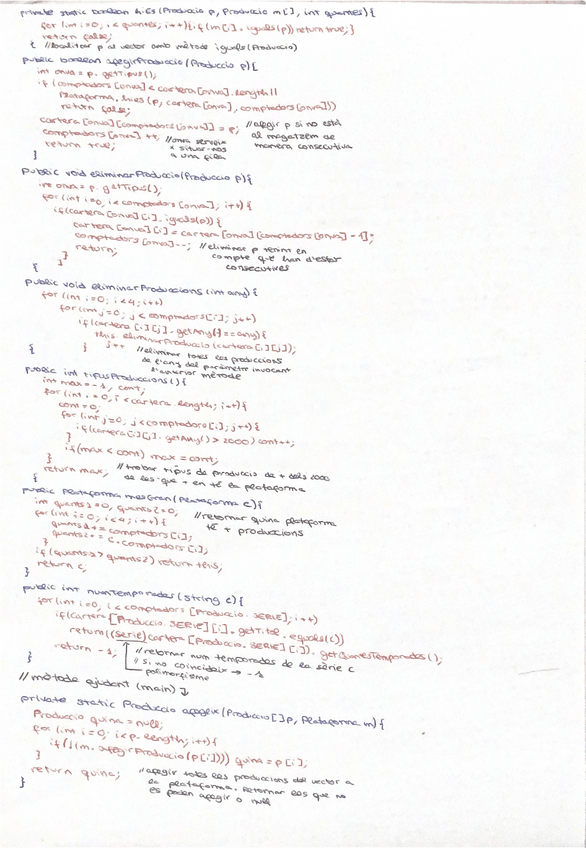 private static boolean hiEs(Produccio p, Produccio m[], int quantes){
for (int i=0; i<quantes; i++){if(m[i].iguals(p))return true;}
return false;
{ //localitzar p al vector amb mètode iguals(Produccio)
public boolean afegirProduccio(Produccio p){
int onva = p.getTipus();
if (comptadors[onva]<cartera[onva].length||
Plataforma.hiEs(p, cartera[onva], comptadors[onva]))
return false;
cartera[onva][comptadors[onva]] = p; //afegir p si no està
comptadors[onva]++; //onva serveix al magatzem de
return true; x situar-nos manera consecutiva
} a una fila
public void eliminarProduccio(Produccio p){
int onva = p.getTipus();
for(int i=0; i<comptadors[onva]; i++){
if(cartera[onva][i].iguals(p)){
cartera[onva][i] = cartera[onva][comptadors[onva]-1];
comptadors[onva]--; //eliminar p tenint en
return; compte que han d'estar
} consecutives
}
{
public void eliminarProduccions(int any){
for (int i=0; i<4; i++)
for(int j=0; j<comptadors[i]; j++)
if(cartera[i][j].getAny()==any){
this.eliminarProduccio(cartera[i][j]);
{ } j++ //eliminar totes les produccions
de l'any del paràmetre invocant
l'anterior mètode
public int tipusProduccions(){
int max=-1, cont;
for(int i=0; i<cartera.length; i++){
cont=0;
for(int j=0; j<comptadors[i]; j++){
if(cartera[i][j].getAny()>2000) cont++;
}
if(max<cont) max=cont;
}
return max; //trobar tipus de produccio de + dels 2000
{ de les que + en té la plataforma
public Plataforma mesGran(Plataforma c){
int quants1=0, quants2=0; //retornar quina plataforma
for(int i=0; i<4; i++){ té + produccions
quants1+=comptadors[i];
quants2+=c.comptadors[i];
}
if(quants1>quants2) return this;
return c;
}
public int numTemporades(String c){
for(int i=0; i<comptadors[Produccio.SERIE]; i++)
if(cartera[Produccio.SERIE][i].getTitol.equals(c))
return((Serie)cartera[Produccio.SERIE][i]).getQuantesTemporades();
return -1; //retornar num temporades de la sèrie c
} // si no coincideix → -1
polimorfisme
//mètode ajudant (main)
private static Produccio afegeix(Produccio[]p, Plataforma m){
Produccio quina=null;
for(int i=0; i<p.length; i++){
if(!(m.afegirProduccio(p[i]))) quina=p[i];
}
return quina; //afegir totes les produccions del vector a
} la plataforma. Retornar les que no
es poden afegir o null